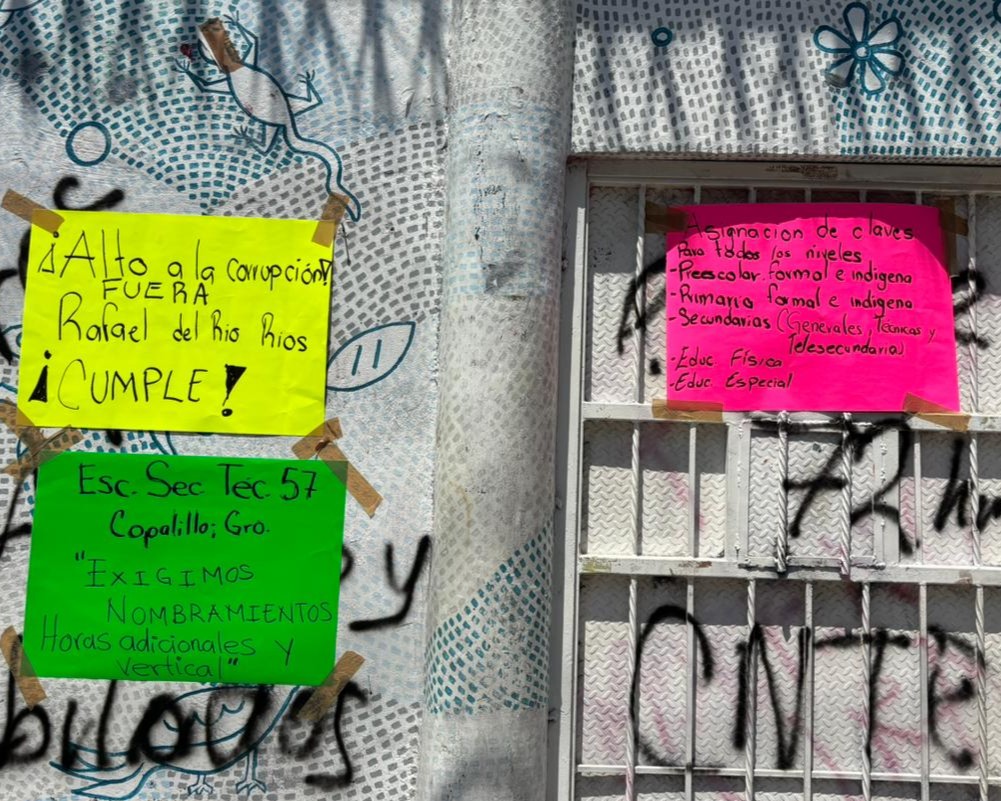 ¡Alto a la corrupción!
FUERA
Rafael del Rio Rios
¡CUMPLE!
Esc. Sec Tec. 57
Copalillo; Gro.
"EXIGIMOS
NOMBRAMIENTOS
Horas adicionales y
vertical"
Asignacion de claves
Para todos los niveles
-Preescolar. formal e indigena
-Primaria formal e indigena
-Secundarias (Generales, Técnicas y
Telesecundarias)
-Educ. Física
-Educ. Especial
72
CNTE
y